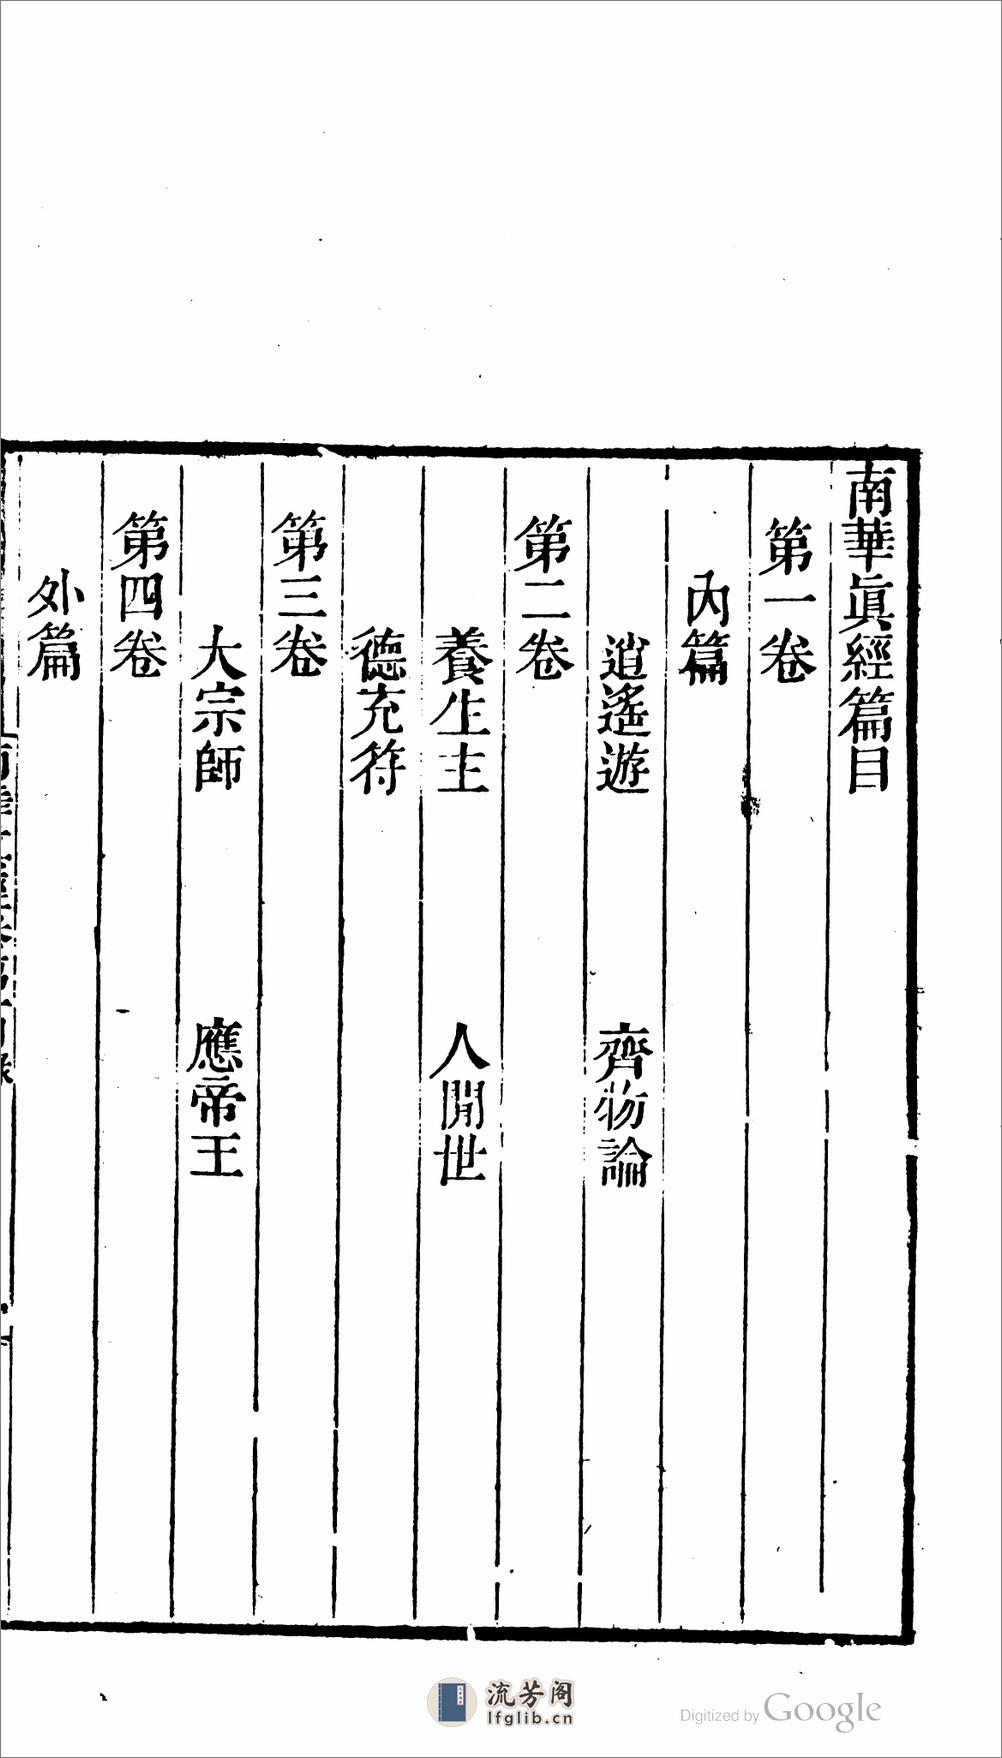 南華眞經篇目
第一卷
內篇
逍遙遊 齊物論
第二卷
養生主 人閒世
德充符
第三卷
大宗師 應帝王
第四卷
外篇
流芳阁
lfglib.cn
Digitized by Google